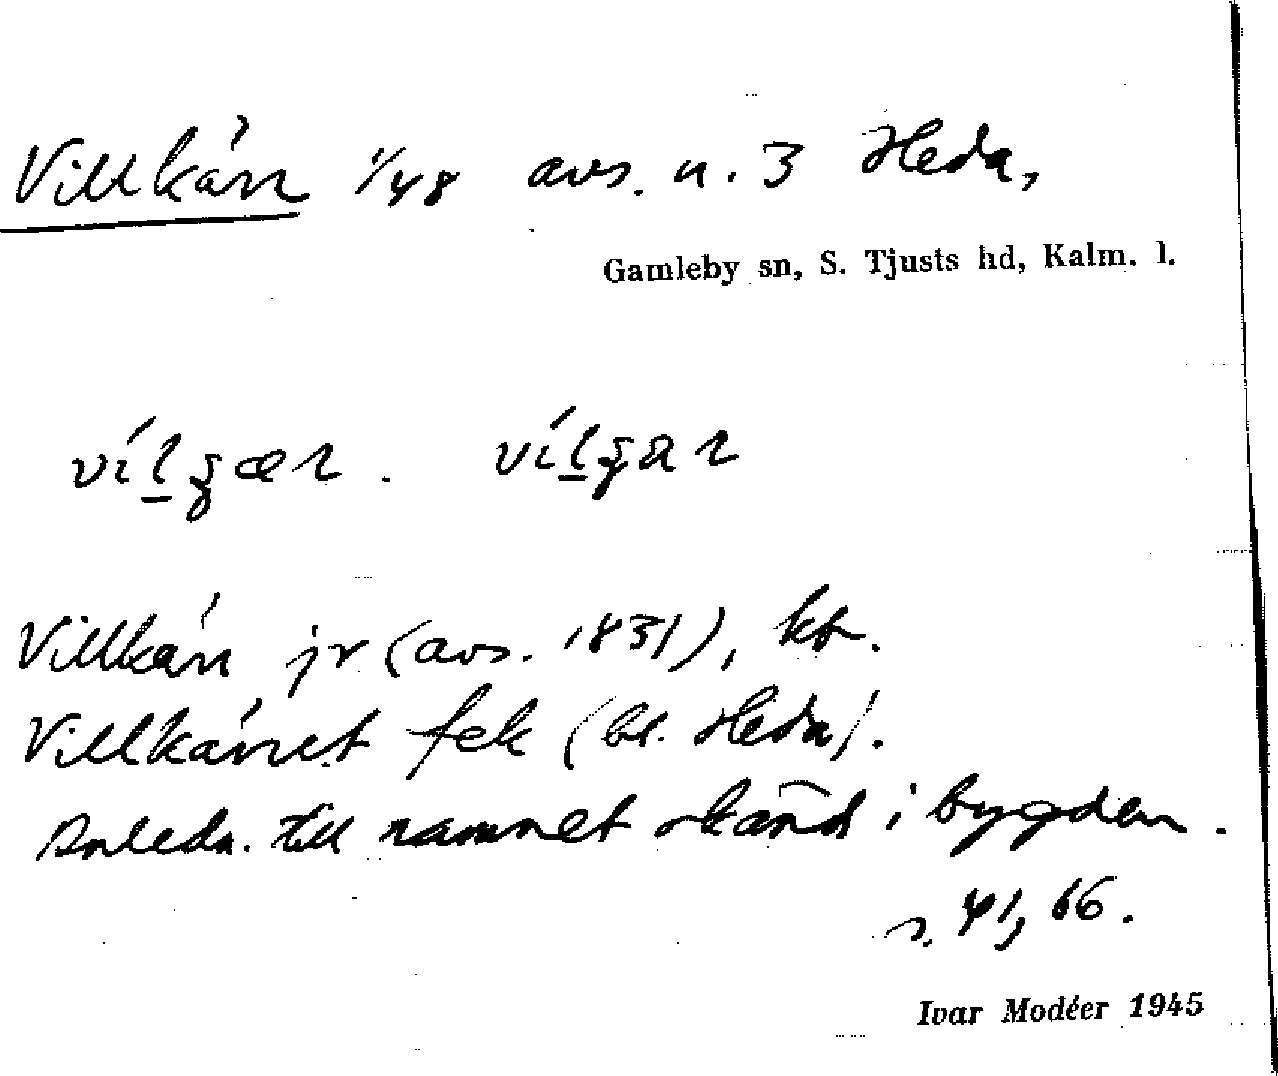 Villkàn 1/48 avs. u. 3 Heda,
Gamleby sn, S. Tjusts hd, Kalm. l.
Villkàn jr (avs. 1831), kb.
Villkàret fek (bl. Heda).
Anledn. till namnet okänd i bygden.
s. 41, 66.
Ivar Modéer 1945